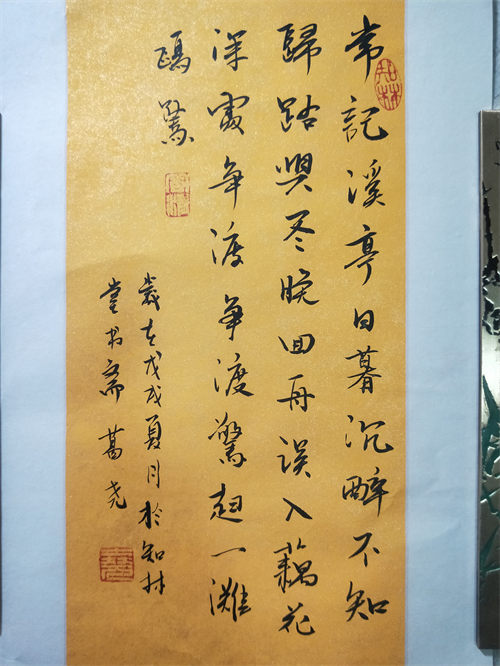 常記溪亭日暮沉醉不知
歸路興尽晚回舟误入藕花
深處争渡争渡驚起一滩
鷗鷺
歲在戊戌夏月於知林
堂书斋 葛尧
知林